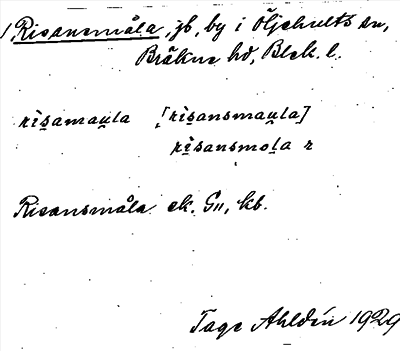 1, Risansmåla, jb, by i Öljehults sn,
Bräkne hd, Blek. l.
rìsamau̲la [rìsansmau̲la]
rìsansmo̲la r
Risansmåla ek. G11, kb.
Tage Ahldén 1929